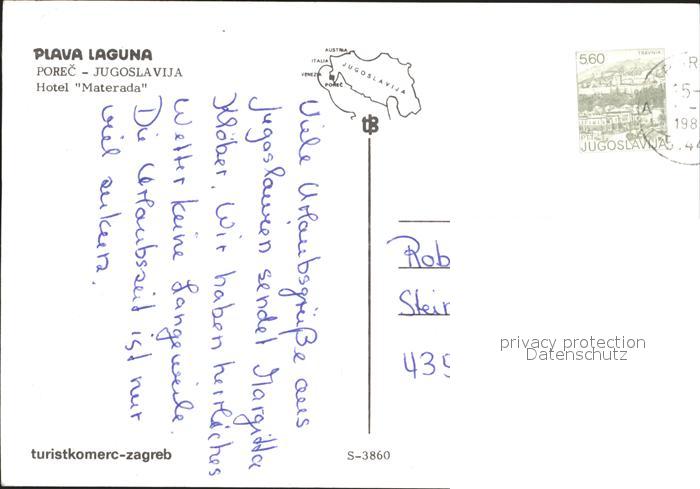 PLAVA LAGUNA
POREČ – JUGOSLAVIJA
Hotel "Materada"
AUSTRIA
ITALIA
VENEZIA
JUGOSLAVIJA
POREČ
tB
TRAVNIK
5.60
JUGOSLAVIJA
198
Viele Urlaubsgrüße aus
Jugoslawien sendet Margitta
Klöber. Wir haben herrliches
Wetter keine Langeweile.
Die Urlaubszeit ist nur
viel zu kurz.
Rob
Stein
435
privacy protection
Datenschutz
turistkomerc-zagreb
S-3860